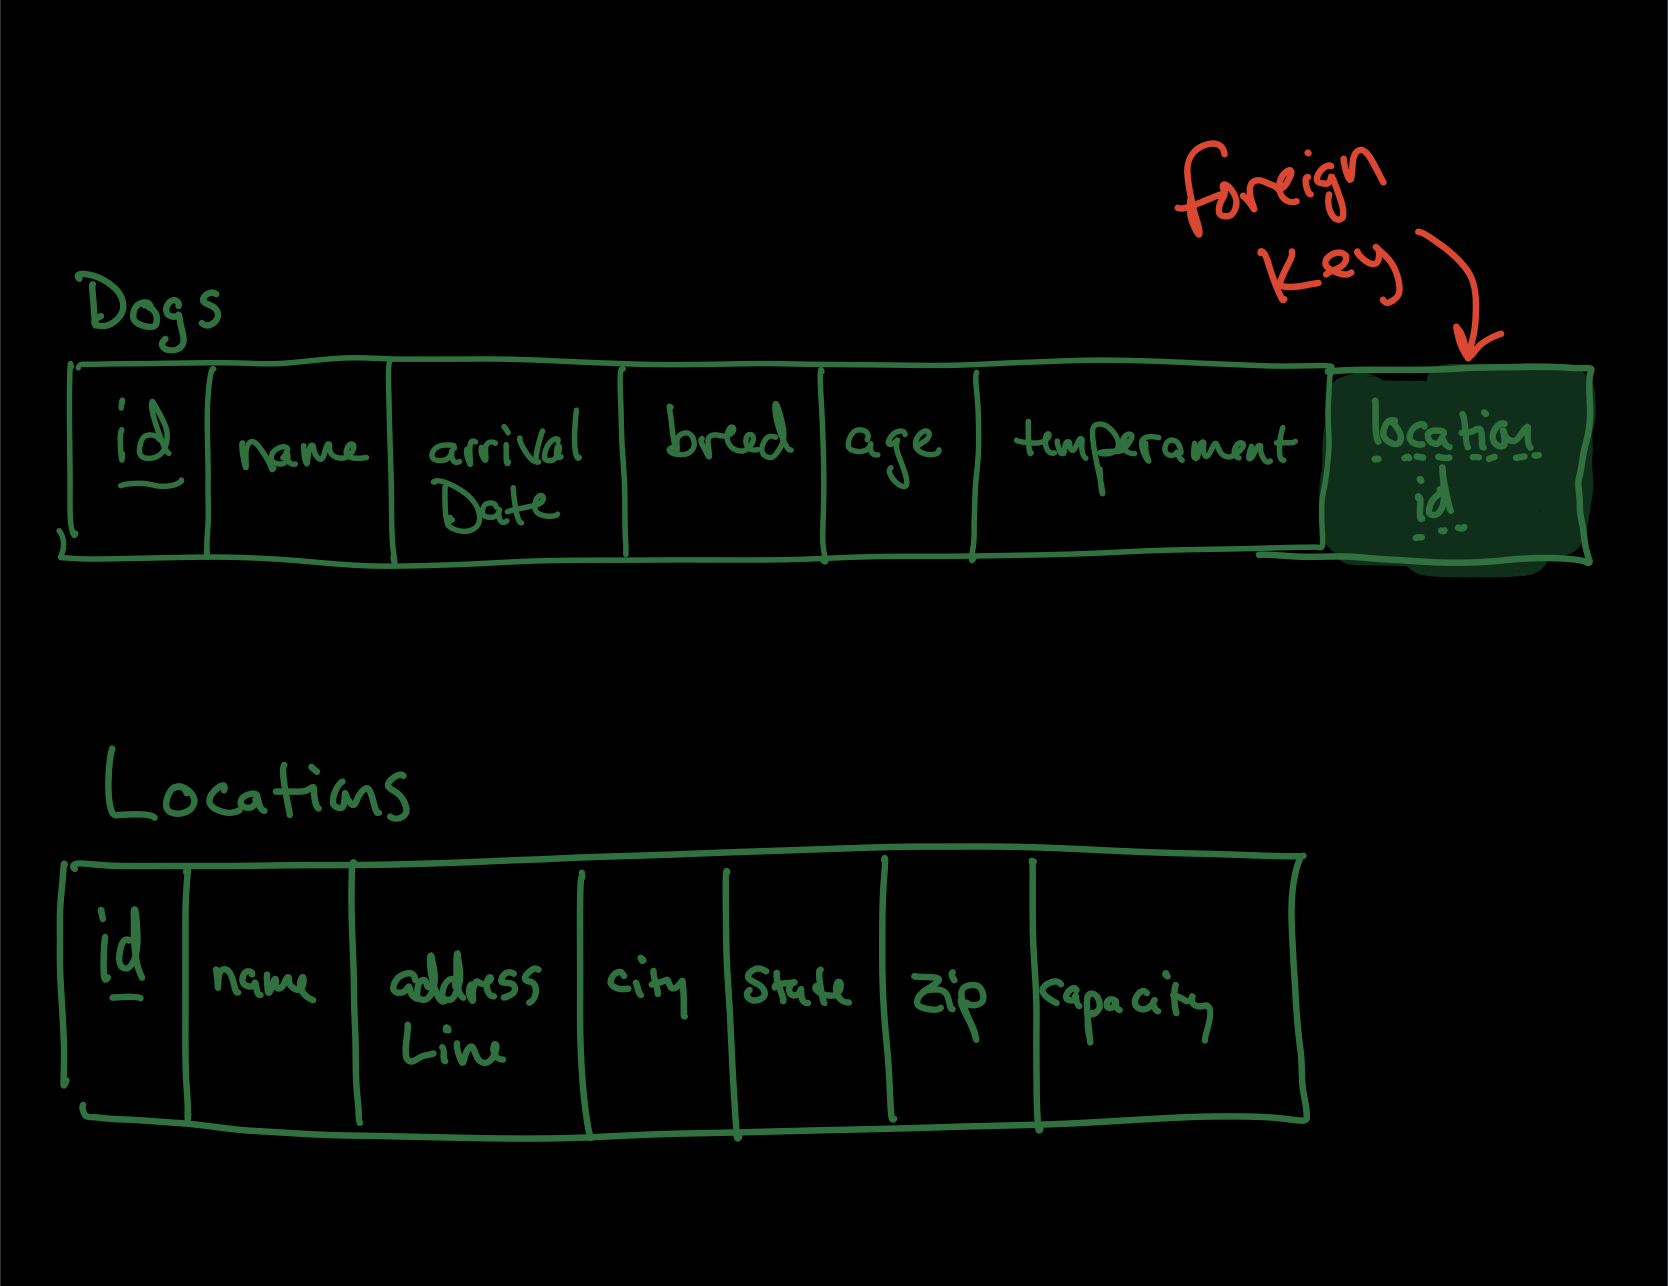 foreign
Key
Dogs
id name arrival Date breed age temperament location id
Locations
id name address Line city state zip capacity